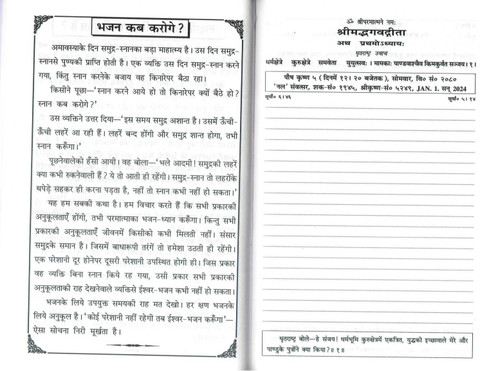 भजन कब करोगे ?
अमावास्याके दिन समुद्र-स्नानका बड़ा माहात्म्य है। उस दिन समुद्र-
स्नानसे पुण्यकी प्राप्ति होती है। एक व्यक्ति उस दिन समुद्र-स्नान करने
गया, किंतु स्नान करनेके बजाय वह किनारेपर बैठा रहा।
किसीने पूछा—'स्नान करने आये हो तो किनारेपर क्यों बैठे हो?
स्नान कब करोगे?'
उस व्यक्तिने उत्तर दिया—'इस समय समुद्र अशान्त है। उसमें ऊँची-
ऊँची लहरें आ रही हैं। लहरें बन्द होंगी और समुद्र शान्त होगा, तभी
स्नान करूँगा।'
पूछनेवालेको हँसी आयी। वह बोला—'भले आदमी! समुद्रकी लहरें
क्या कभी रुकनेवाली हैं? ये तो आती ही रहेंगी। समुद्र-स्नान तो लहरोंके
थपेड़े सहकर ही करना पड़ता है, नहीं तो स्नान कभी नहीं हो सकता।'
यह हम सबकी कथा है। हम विचार करते हैं कि सभी प्रकारकी
अनुकूलताएँ होंगी, तभी परमात्माका भजन-ध्यान करूँगा। किन्तु सभी
प्रकारकी अनुकूलताएँ जीवनमें किसीको कभी मिलती नहीं। संसार
समुद्रके समान है। जिसमें बाधारूपी तरंगें तो हमेशा उठती ही रहेंगी।
एक परेशानी दूर होनेपर दूसरी परेशानी उपस्थित होगी ही। जिस प्रकार
वह व्यक्ति बिना स्नान किये रह गया, उसी प्रकार सभी प्रकारकी
अनुकूलताकी राह देखनेवाले व्यक्तिसे ईश्वर-भजन कभी नहीं हो सकता।
भजनके लिये उपयुक्त समयकी राह मत देखो। हर क्षण भजनके
लिये अनुकूल है। 'कोई परेशानी नहीं रहेगी तब ईश्वर-भजन करूँगा'—
ऐसा सोचना निरी मूर्खता है।
ॐ श्रीपरमात्मने नमः
श्रीमद्भगवद्गीता
अथ प्रथमोऽध्यायः
धृतराष्ट्र उवाच
धर्मक्षेत्रे कुरुक्षेत्रे समवेता युयुत्सवः। मामकाः पाण्डवाश्चैव किमकुर्वत सञ्जय॥१॥
पौष कृष्ण ५ (दिनमें १२।२० बजेतक), सोमवार, वि० सं० २०८०
'नल' संवत्सर, शक-सं० १९४५, श्रीकृष्ण-सं० ५२४९, JAN. 1. सन् 2024
सूर्यो० ६।४६ सूर्या० ५।१४
धृतराष्ट्र बोले—हे संजय! धर्मभूमि कुरुक्षेत्रमें एकत्रित, युद्धकी इच्छावाले मेरे और
पाण्डुके पुत्रोंने क्या किया?॥१॥